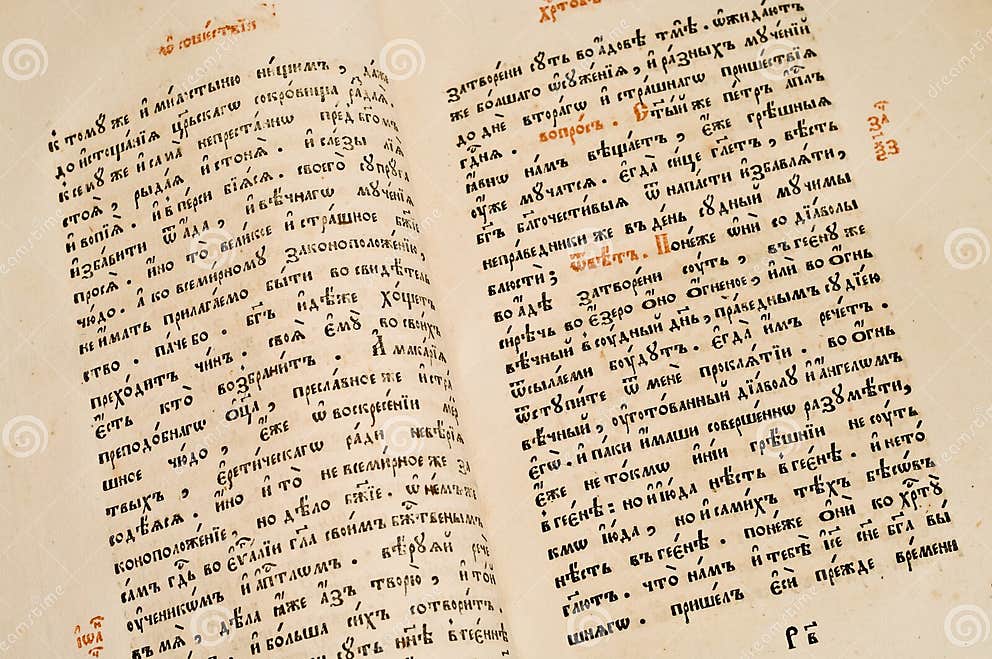 к томуже и҆ мл҃стыню ни́щимъ, да́же
до и҆стоща́нїѧ цр҃ьскагѡ сокро́вища ра́даѧ.
ксемꙋ́же и҆ сама̀ непреста́ннѡ пред бг҃омъ
стоѧ̀, рыда́ѧ и҆ стонѧ̀. и҆ сле́зы лїѧ̀
и҆ вопїѧ̀. и҆ в пе́рси бїѧ́сѧ. своего̀ сꙋпрꙋ́га
и҆зба́вити ѿ а҆́да, и҆ вѣ́чнагѡ мꙋче́нїѧ
просѧ̀. и҆́но то̀ вели́кое и҆ стра́шное бж҃їе
чю́до. а҆ ко всеми́рномꙋ законоположе́нїю,
не и҆́мать прилага́емо бы́ти во свидѣ́тель
ство. па́че бо. бг҃ъ и҆дѣ́же хо́щетъ
прехо́дитъ чи́нъ. своѧ̀ є҆мꙋ̀ во свои́хъ
є҆́сть кто̀ возбрани́тъ. И҆ мака́рїѧ
преподо́бнагѡ ѻ҆ц҃а̀, пресла́вноеже и҆ стра
шное чю́до, є҆́же ѡ҆ воскресе́нїи ме́р
твыхъ, є҆рети́ческагѡ ра́ди невѣ́рїѧ
содѣ́ѧсѧ. и҆́но и҆ то̀ не всеми́рноеже за
коноположе́нїе, но дѣ́ло бж҃їе. ѡ҆ не́мже
са́мъ гд҇ь во є҆ѵⷢ҇лїи гл҃а свои҆́мъ бж҇твенымъ
ᲂу҆чн҃икѡ́мъ и҆ а҆пⷭ҇лѡмъ. вѣ́рꙋѧй речѐ
въ мѧ̀, дѣла̀ ꙗ҆́же а҆́зъ творю̀, и҆ то́й
и҆ бо́льша си́хъ сотвори́тъ.
затво́рени сꙋ́ть во а҆́довѣ тмѣ̀. ѡ҆жида́ютъ
же бо́лшаго ѡ҆сꙋже́нїѧ, и҆ ра́зныхъ мꙋче́нїй
до днѐ вто́рагѡ и҆ стра́шнагѡ прише́ствїѧ
гд҇нѧ. вопро́съ. Ст҃ы́йже пе́тръ а҆пⷭ҇лъ
ꙗ҆́внѡ на́мъ вѣща́етъ, є҆́же грѣ́шныѧ
ᲂу҆же мꙋ́чатсѧ. є҆гда̀ си́це гл҃етъ, вѣ́сть
бг҃ъ бл҃гочести́выѧ ѿ напа́сти и҆збавлѧ́ти,
непра́ведникиже въ де́нь сꙋ́дный мꙋ́чимы
блюстѝ; ѿвѣ́тъ. Поне́же ѻ҆нѝ со дїа́волы
во а҆́дѣ затво́рени сꙋ́ть, въ гее́нꙋ же
си́рѣчь во є҆́зеро ѻ҆́но ѻ҆́гненое, и҆лѝ во ѻ҆́гнь
вѣ́чный в сꙋ́дный дн҃ь, пра́веднымъ сꙋдїе́ю
ѿсыла́еми бꙋ́дꙋтъ. є҆гда̀ и҆̀мъ рече́тъ.
ѿстꙋпи́те ѿ менѐ проклѧ́тїи. во ѻ҆́гнь
вѣ́чный, ᲂу҆гото́ванный дїа́волꙋ и҆ а҆́нгеломъ
є҆гѡ̀. и҆ па́ки и҆́маши соверше́ннѡ разꙋмѣ́ти,
є҆́же не то́кмѡ и҆нїи грѣ́шнїи не сꙋ́ть
в гее́нѣ: но и҆ і҆ю́да нѣ́сть в гее́нѣ. и҆ не то́
кмѡ і҆ю́да, но и҆ сами́хъ тѣ́хъ бѣсѡ́въ
нѣ́сть въ гее́нѣ. поне́же ѻ҆нѝ ко хрⷭ҇тꙋ̀
гл҃ютъ. что̀ на́мъ и҆ тебѣ̀ і҆и҃се сн҃е бг҃а вы́
шнѧгѡ. прише́лъ є҆сѝ пре́жде вре́мени
рв҃